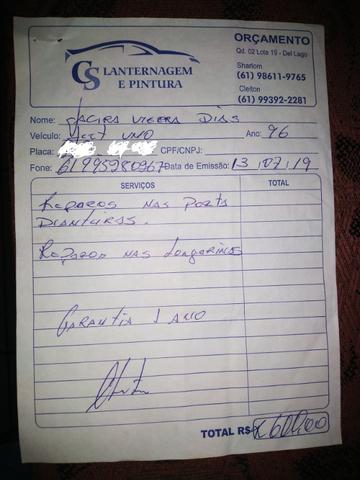 ORÇAMENTO
Qd. 02 Lote 19 - Del Lago
Sharlom
(61) 98611-9765
Cleiton
(61) 99392-2281
CS LANTERNAGEM
E PINTURA
Nome: Jacira Vieira Dias
Veículo: UNO Ano: 96
Placa: CPF/CNPJ:
Fone: 61 995280967 Data de Emissão: 13/07/19
SERVIÇOS TOTAL
Reparos nas Porta
Dianteiras.
Reparos nas Longarinas
Garantia 1 ano
TOTAL R$ 600,00